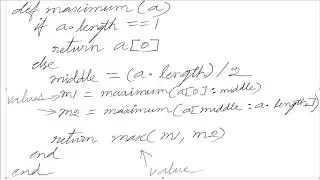 def maximum(a)
if a.length == 1
return a[0]
else
middle = (a.length)/2
values → m1 = maximum(a[0]:middle)
→ m2 = maximum(a[middle:a.length])
return max(m1, m2)
end
end
value